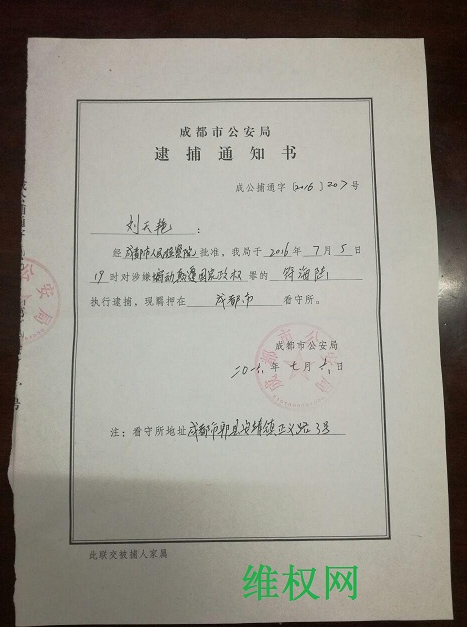 成都市公安局
逮捕通知书
成公捕通字〔2016〕207号
刘天艳：
经成都市人民检察院批准，我局于2016年7月5日
19时对涉嫌煽动颠覆国家政权罪的符海陆
执行逮捕，现羁押在成都市看守所。
成都市公安局
二〇一六年七月六日
注：看守所地址成都市郫县安靖镇正义路3号
此联交被捕人家属
维权网